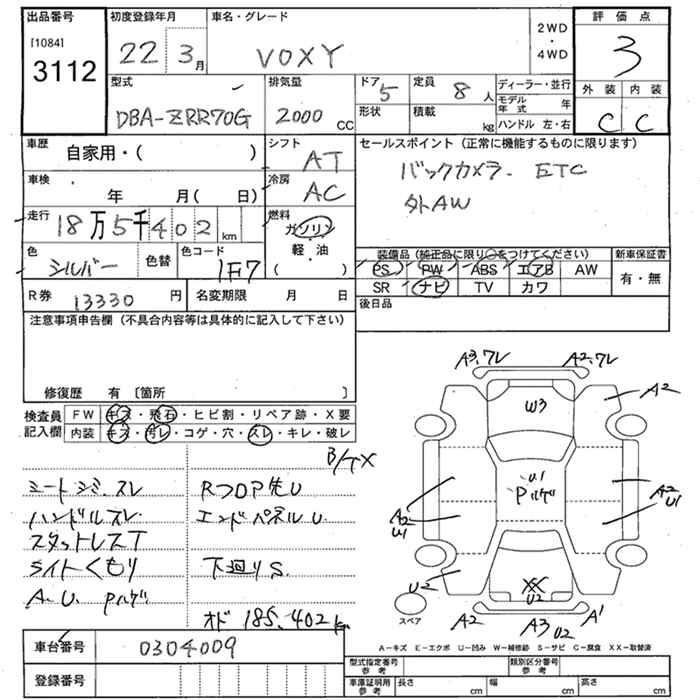 出品番号
[1084]
3112
初度登録年月
22 3月
車名・グレード
VOXY
2WD
・
4WD
評価点
3
外装 内装
C C
型式
DBA-ZRR70G
排気量
2000 CC
ドア 5
形状
定員 8 人
積載 kg
ディーラー・並行
モデル年式 年
ハンドル 左・右
車歴
自家用・( )
シフト
AT
車検
年 月( 日)
冷房
AC
走行
18万5千402 km
燃料
ガソリン
・
軽・油
( )
色
シルバー
色替
色コード
1F7
R券 13330 円
名変期限 月 日
セールスポイント(正常に機能するものに限ります)
バックカメラ. ETC
外AW
装備品(純正品に限り○をつけてください)
PS PW ABS エアB AW
SR ナビ TV カワ
新車保証書
有・無
後日品
注意事項申告欄(不具合内容等は具体的に記入して下さい)
修復歴 有〔箇所 〕
検査員記入欄
FW キズ・飛石・ヒビ割・リペア跡・X要
内装 キズ・汚レ・コゲ・穴・スレ・キレ・破レ
シートシミ.スレ
ハンドルスレ.
スタットレスT
ライトくもり
A.U. Pハゲ
RフロアU
エンドパネルU.
下廻りS.
オド 185.402km
A3.フレ
A2.フレ
A2
W3
U1
Pハゲ
A2
U1
A2
U1
U2
XX
U2
A2
A3
U2
A1
スペア
A-キズ E-エクボ U-凹み W-補修跡 S-サビ C-腐食 XX-取替済
車台番号 0304009
登録番号
型式指定番号
参考
類別区分番号
参考
車庫証明用
参考
長さ cm 幅 cm 高さ cm